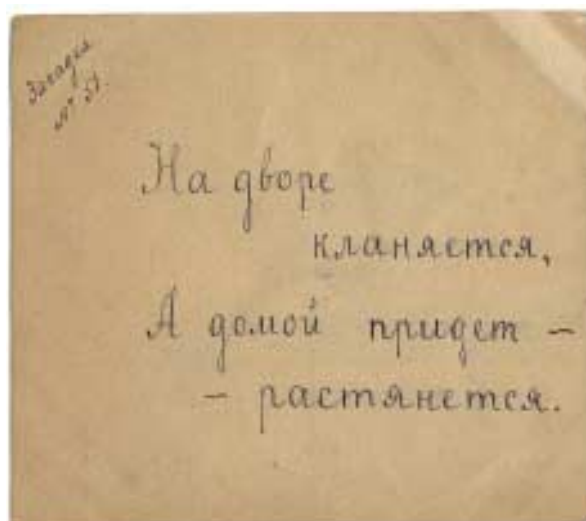 Загадка
№ 51.
На дворе
кланяется,
А домой придет –
– растянется.